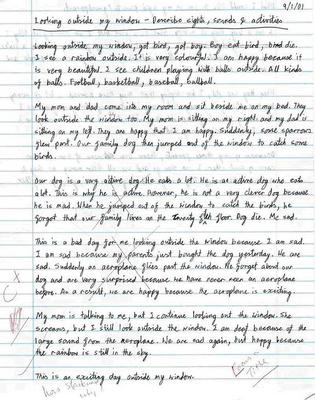 9/1/01
Looking outside my window - Describe sights, sounds & activities
Looking outside my window, got bird, got boy. Boy eat bird, bird die.
I see a rainbow outside. It is very colourful. I am happy because it
is very beautiful. I see children playing with balls outside. All kinds
of balls. Football, basketball, baseball, ballball.
My mom and dad come into my room and sit beside me on my bed. They
look outside the window too. My mom is sitting on my right and my dad is
sitting on my left. They are happy that I am happy. Suddenly, some sparrows
flew past. Our family dog then jumped out of the window to catch some
birds.
Our dog is a very active dog. He eats a lot. He is an active dog who eats
a lot. This is why he is active. However, he is not a very clever dog because
he is mad. When he jumped out of the window to catch the birds, he
forgot that our family lives on the Twenty 5th floor. Dog die. Me sad.
This is a bad day for me looking outside the window because I am sad.
I am sad because my parents just bought the dog yesterday. He are
sad. Suddenly an aeroplane flies past the window. We forget about our
dog and are very surprised because we have never seen an aeroplane
before. As a result, we are happy because the aeroplane is exciting.
C+
My mom is talking to me, but I continue looking out the window. She
screams, but I still look outside the window. I am deaf because of the
large sound from the aeroplane. We are sad again, but happy because
the rainbow is still in the sky.
This is an exciting day outside my window.